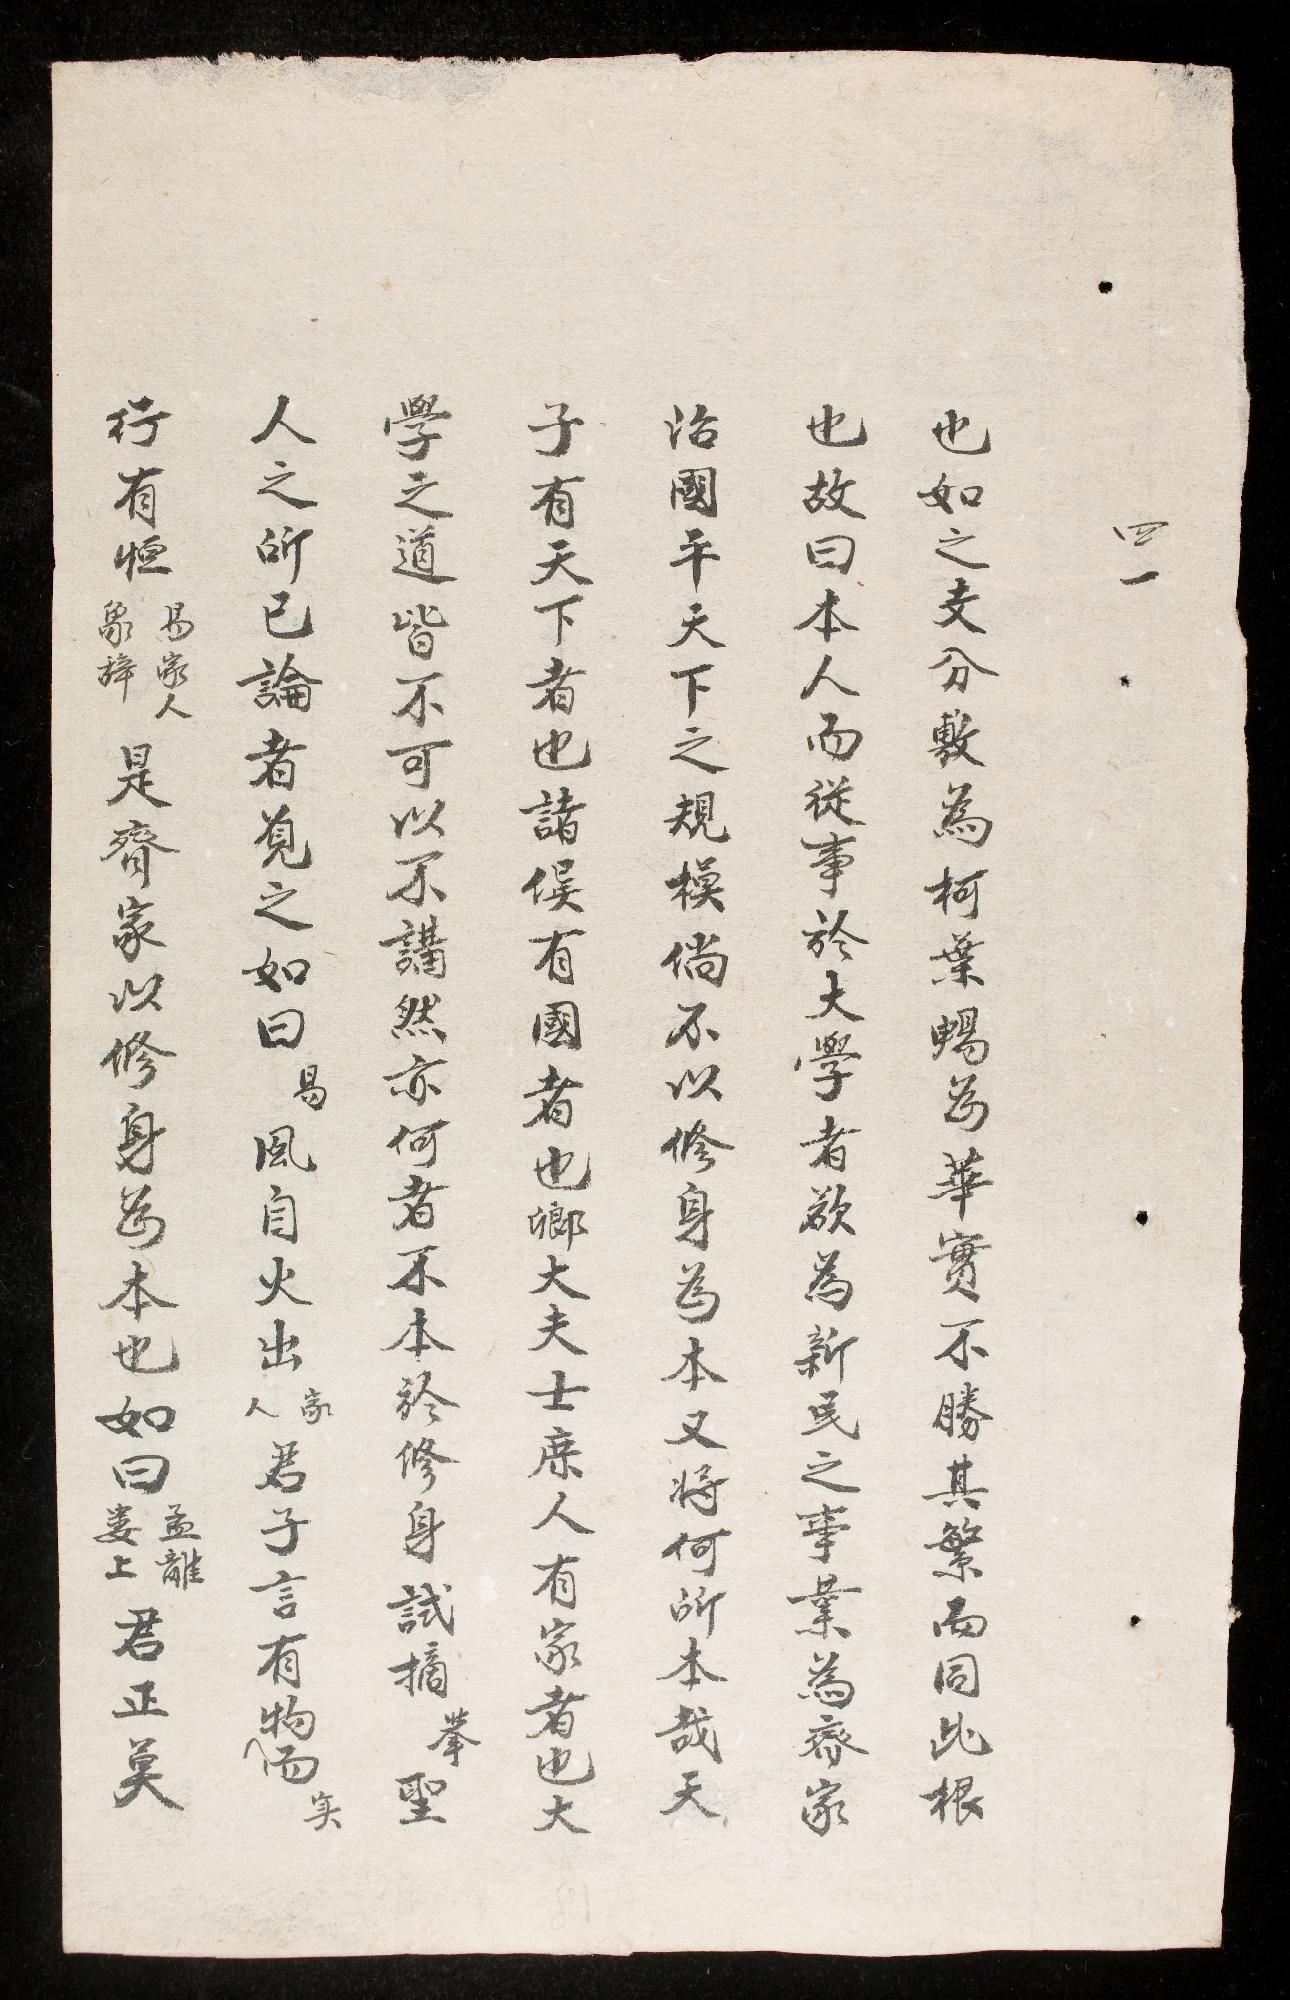 四一
也如之支分敷為柯葉暢为華實不勝其繁而同此根
也故曰本人而從事於大學者欲為新民之事業為齊家
治國平天下之規模倘不以修身为本又将何所本哉天
子有天下者也諸侯有國者也鄉大夫士庶人有家者也大
學之道皆不可以不講然亦何者不本於修身試摘举聖
人之所已論者覓之如曰易風自火出家人君子言有物而实
行有恒易家人象辞是齊家以修身为本也如曰孟離娄上君正莫